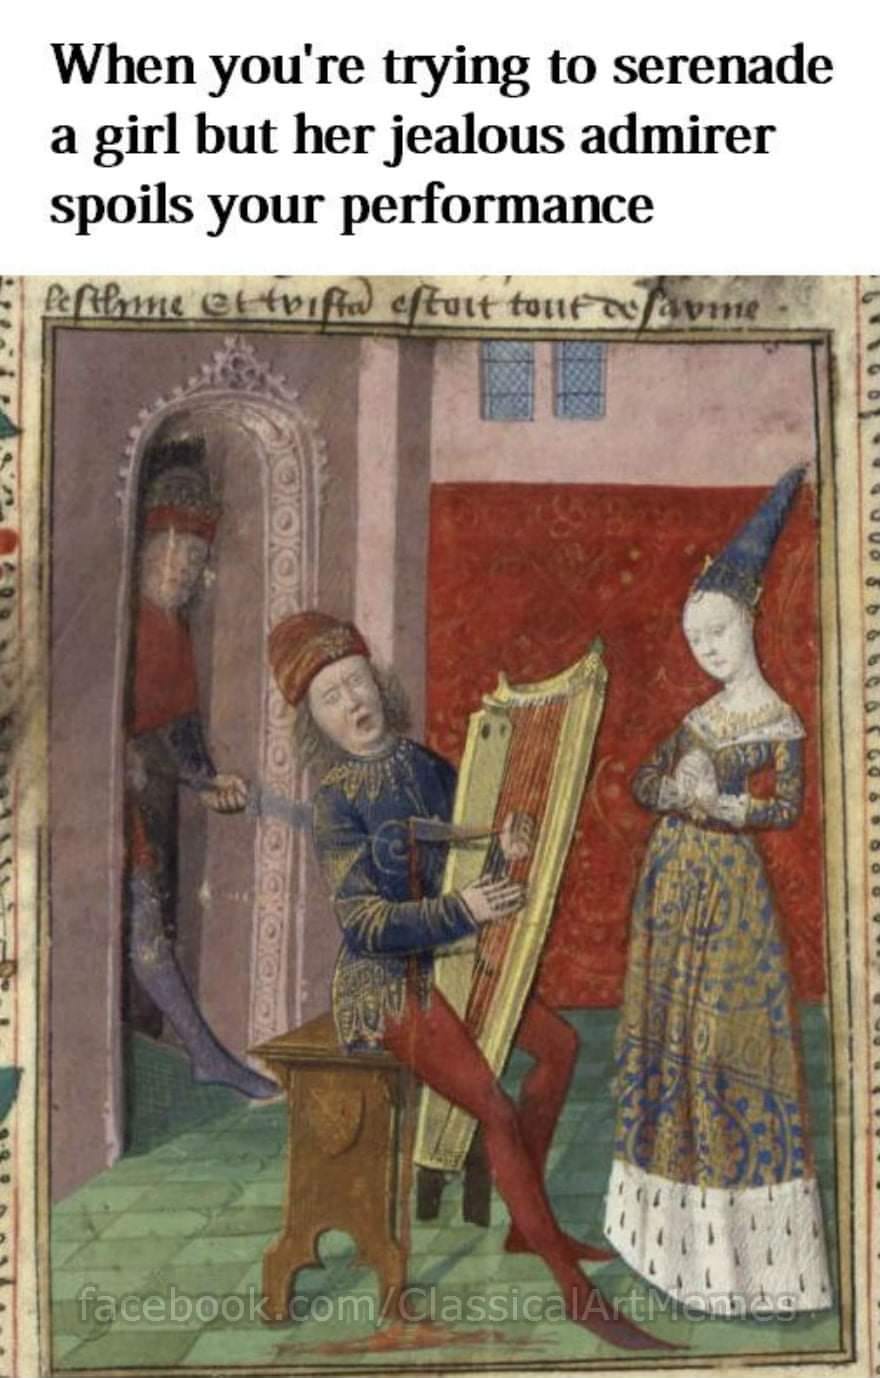 When you're trying to serenade
a girl but her jealous admirer
spoils your performance
estoit tout
facebook.com/ClassicalArtMemes